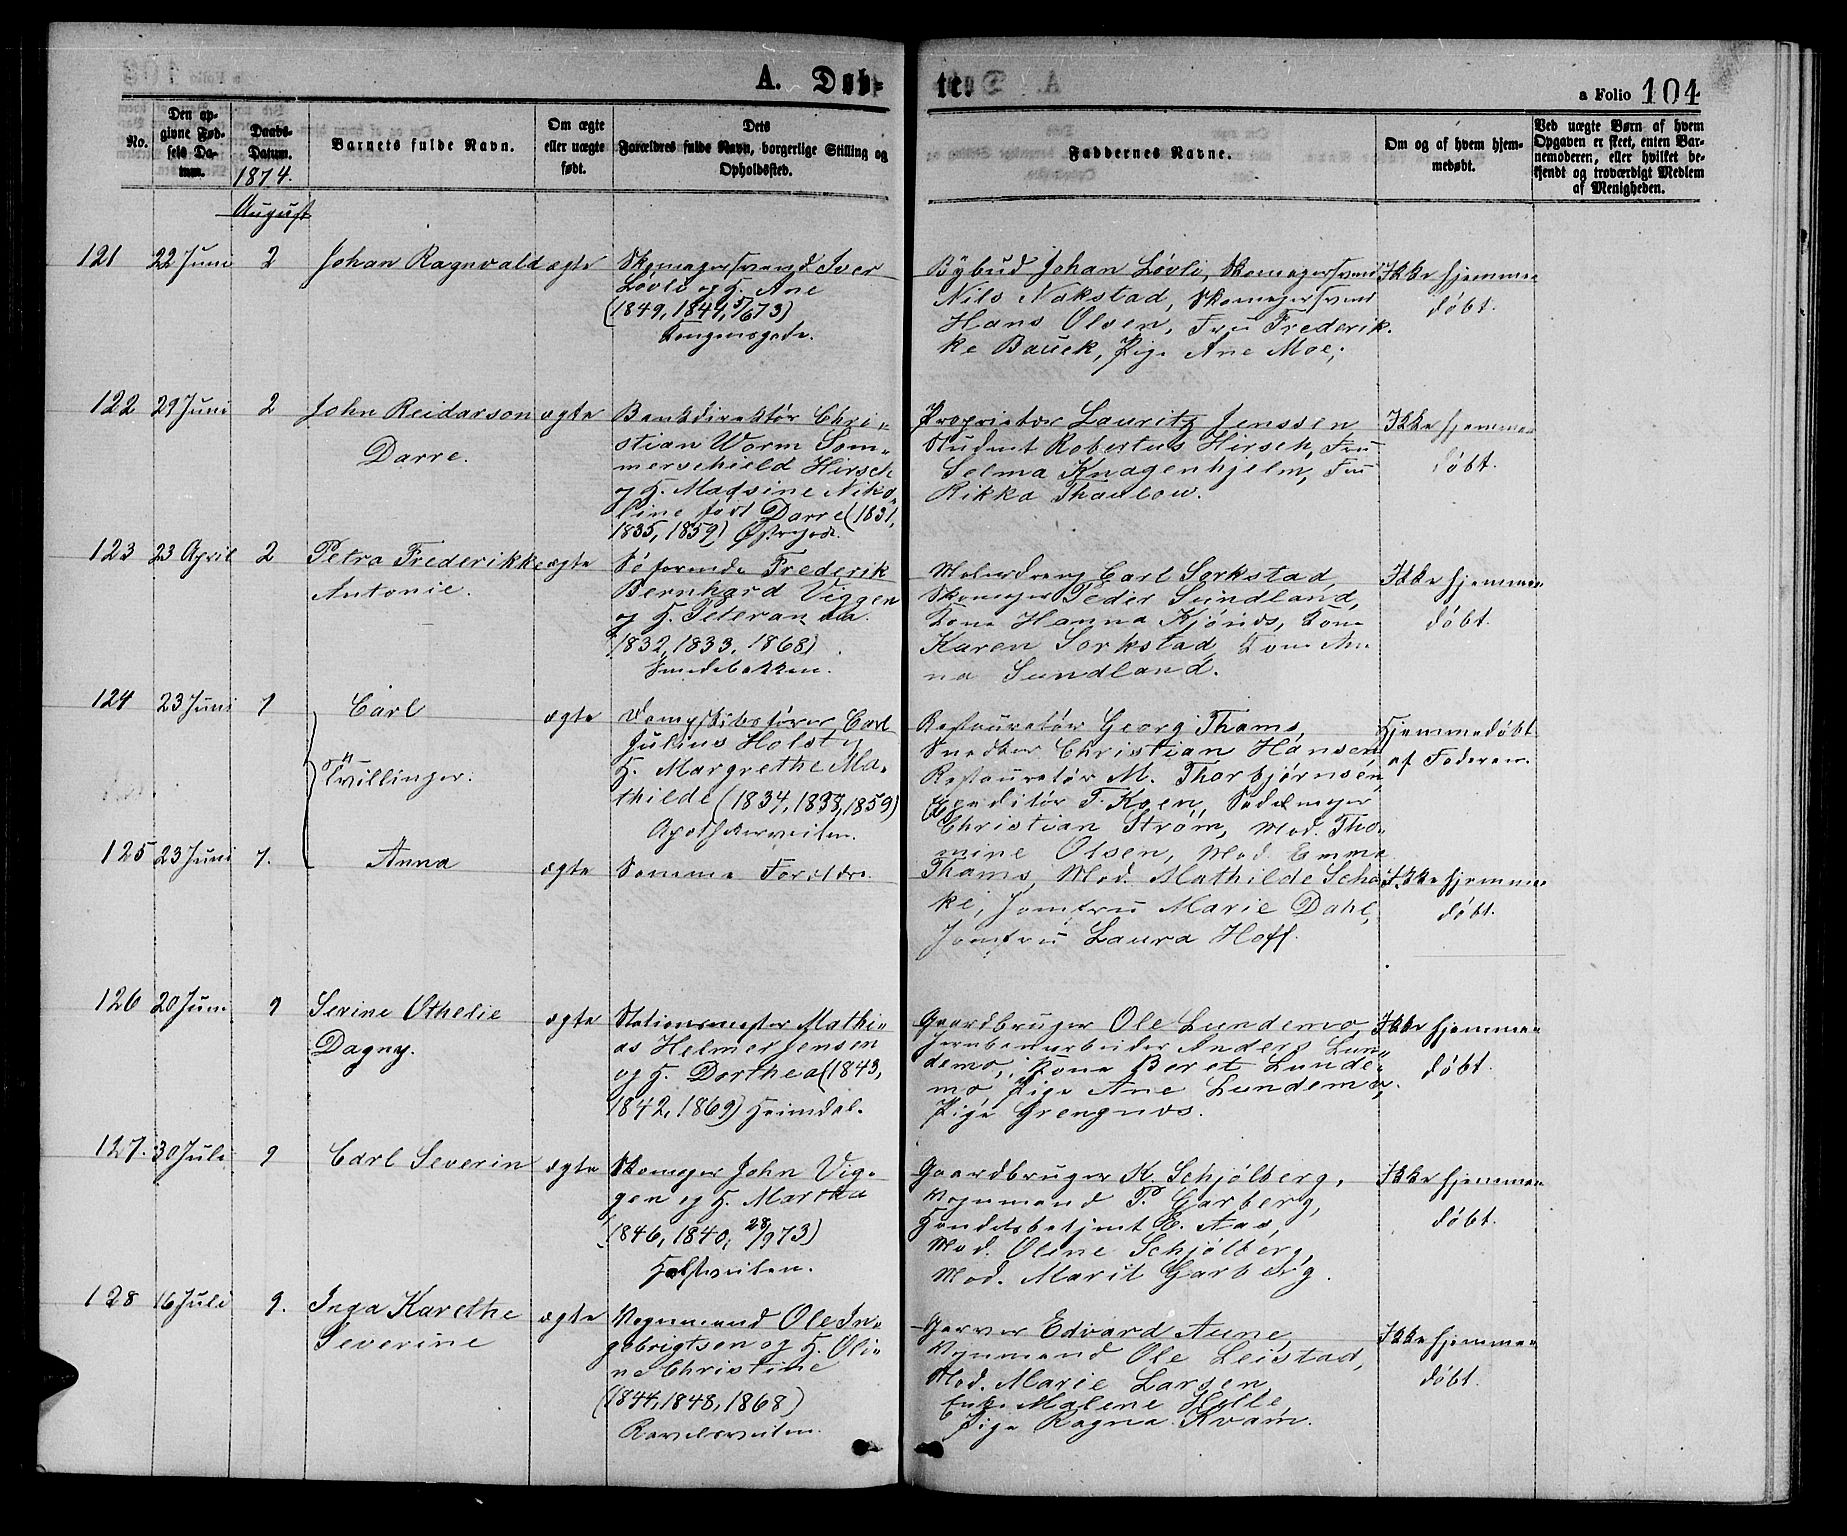 A. Døb-
te.
a Folio 104
No.
Den op-
givne Fød-
sels Da-
tum.
Daabs-
Datum.
1874.
Barnets fulde Navn.
Om ægte
eller uægte
født.
Dets
Forældres fulde Navn, borgerlige Stilling og
Opholdssted.
Faddernes Navne.
Om og af hvem hjem-
medøbt.
Ved uægte Børn af hvem
Opgaven er skeet, enten Bar-
nemoderen, eller hvilket be-
kjendt og troværdigt Medlem
af Menigheden.
August
121 22 Juni 2 Johan Ragnvald ægte
Skomagersvend Iver
Løvli og H. Ane
(1849, 1849, 5/6 73)
Kongensgade.
Bybud Johan Løvli, Skomagersvend
Nils Nakstad, Skomagersvend
Hans Olsen, Fru Frederik-
ke Bauck, Pige Ane Moe,
Ikke hjemme-
døbt.
122 29 Juni 2 John Reidarson
Darre.
ægte
Bankdirektør Chri-
stian Worm Som-
merschield Hirsch
og H. Madsine Niko-
line født Darre (1831,
1835, 1859) Østregade.
Proprietær Lauritz Jenssen
Student Robertus Hirsch, Fru
Selma Knagenhjelm, Fru
Rikka Thaulow.
Ikke hjemme-
døbt.
123 23 April 2 Petra Frederikke
Antonie.
ægte
Søfarende Frederik
Bernhard Viggen
og H. Peteranna
(1832, 1833, 1868)
Smedebakken.
Malerdreng Carl Sorkstad
Skomager Peder Sundland,
Kone Hanna Kjønås, Kone
Karen Sorkstad, Kone An-
na Sundland.
Ikke hjemme-
døbt.
124 23 Juni 7 Carl
Tvillinger.
ægte
Dampskibsfører Carl
Julius Holst og
H. Margrethe Ma-
thilde (1834, 1838, 1859)
Apothekerveiten.
Restauratør Georg Thams,
Snedker Christian Hansen,
Restauratør M. Thorbjørnsen,
Expeditør F. Koen, Sadelmager
Christian Strøm, Mad. Tho-
mine Olsen, Mad. Emma
Thams, Mad. Mathilde Schai-
ke, Jomfru Marie Dahl,
Jomfru Laura Hoff.
Hjemmedøbt
af Faderen.
125 23 Juni 7. Anna
ægte
Samme Forældre.
Ikke hjemme-
døbt.
126 20 Juni 9 Serine Othelie
Dagny.
ægte
Stationsmester Mathi-
as Helmer Jensen
og H. Dorthea (1843,
1842, 1869) Heimdal.
Gaardbruger Ole Lundemo,
Jernbanearbeider Anders Lun-
demo, Kone Beret Lunde-
mo, Pige Ane Lundemo,
Pige Grengnæs.
Ikke hjemme-
døbt.
127. 30 Juli 9 Carl Severin ægte
Skomager John Vig-
gen og H. Martha
(1846, 1840, 28/9 73)
Holstveiten.
Gaardbruger K. Schjølberg,
Vognmand P. Garberg,
Handelsbetjent E. Aas,
Mad. Oline Schjølberg,
Mad. Marit Garberg.
Ikke hjemme-
døbt.
128 16 Juli 9. Inga Karethe
Severine
ægte
Vognmand Ole In-
gebrigtsen og H. Oli-
ne Christine
(1844, 1848, 1868)
Ravelsveiten.
Garver Edvard Aune,
Vognmand Ole Leistad,
Mad. Marie Larsen
Enke Malene Holle,
Pige Ragna Kvam.
Ikke hjemme-
døbt.